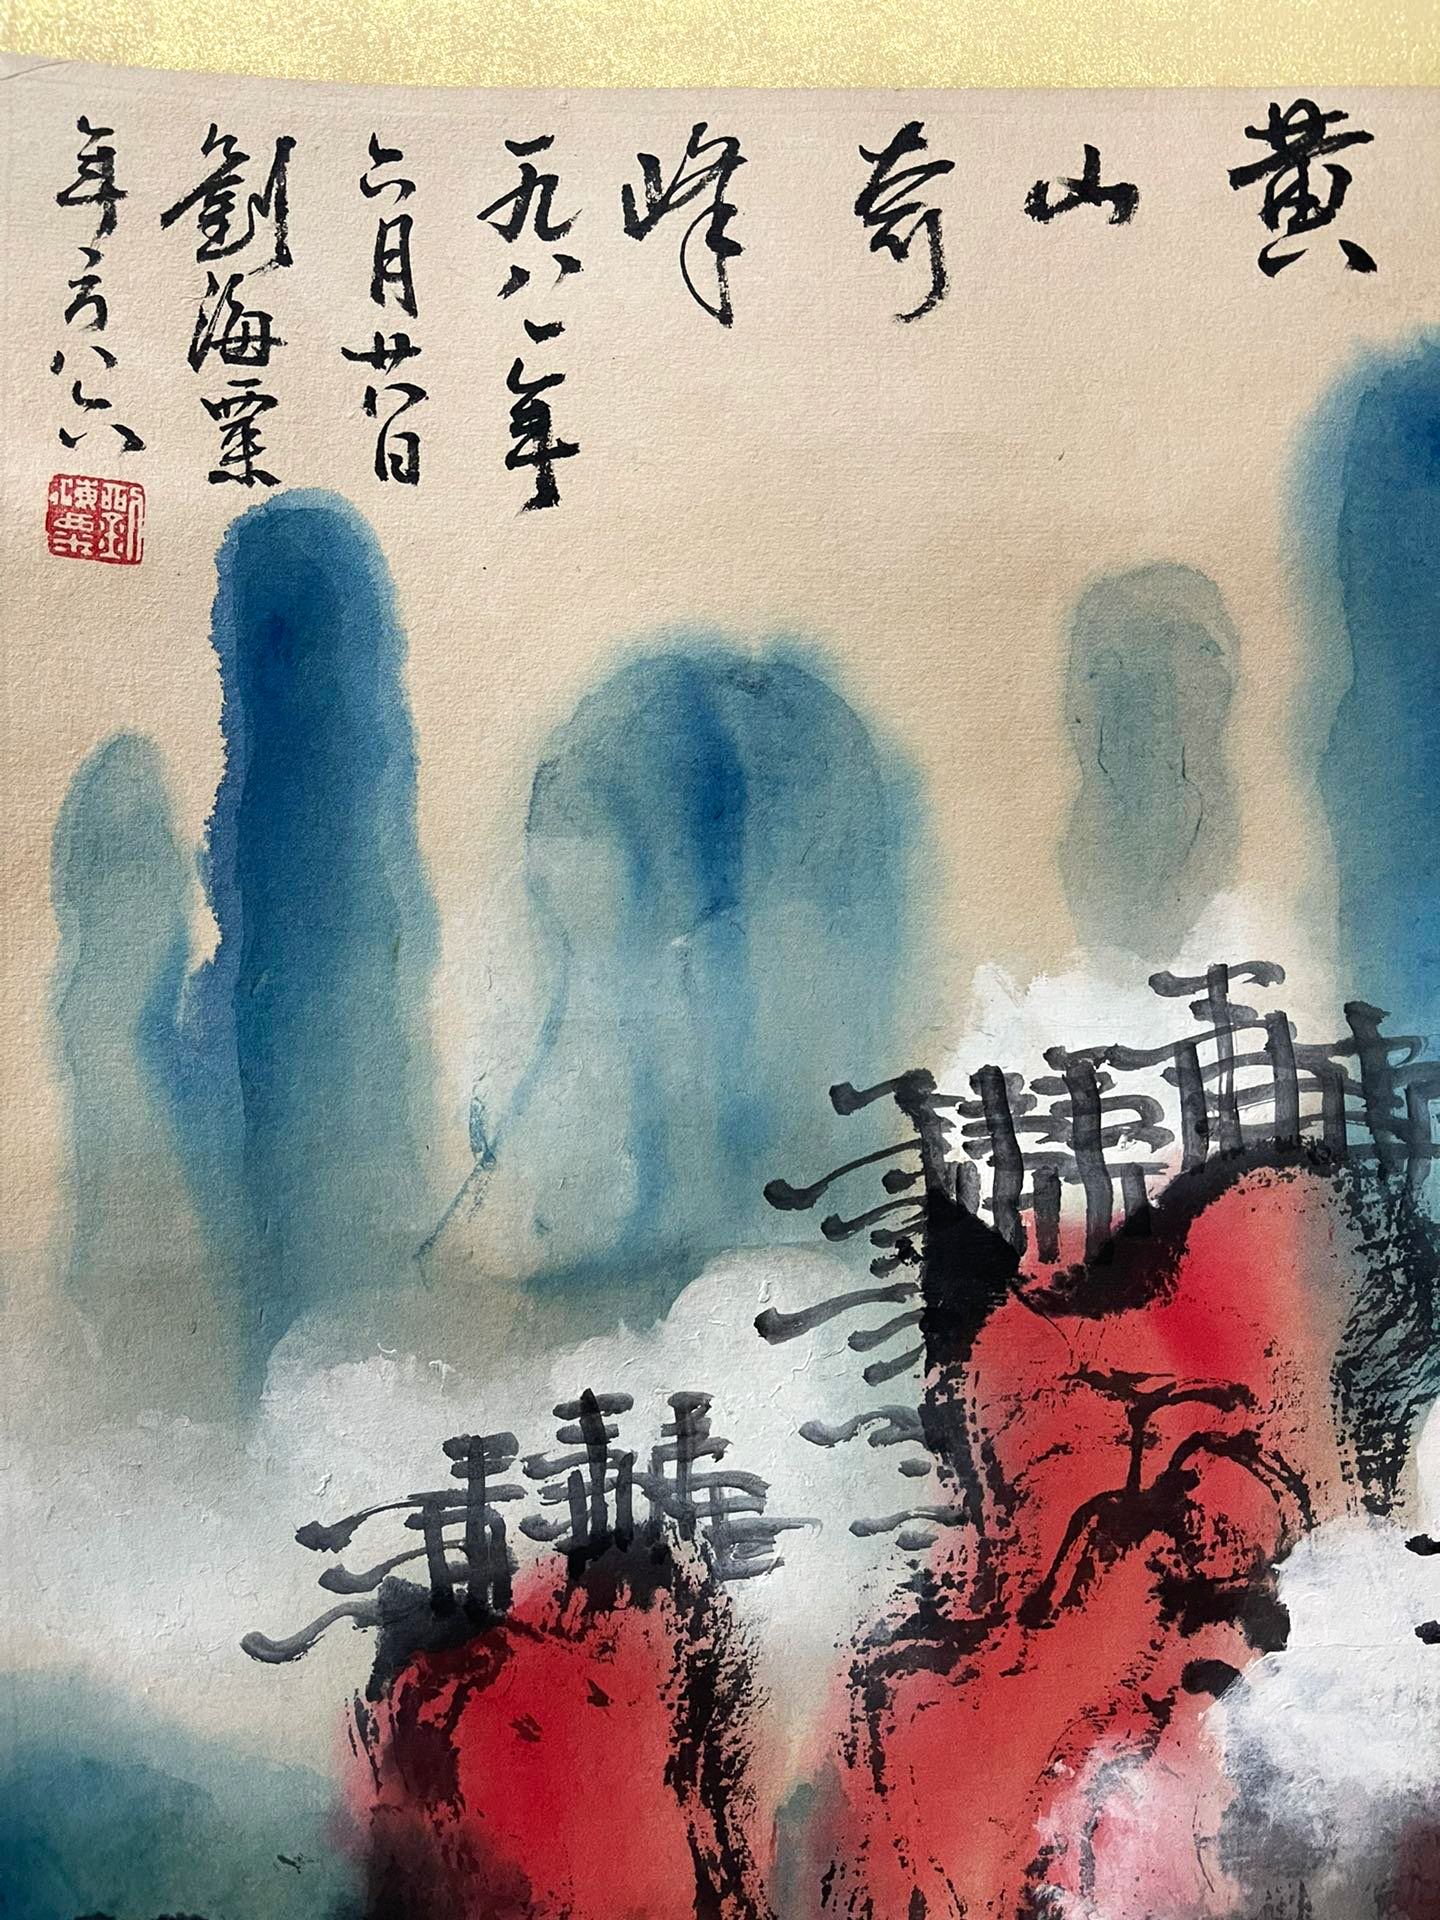 黄山奇峰
一九八一年
六月廿八日
劉海粟
年方八六
劉海粟